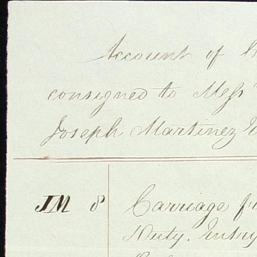 Account of
consigned to Mess
Joseph Martinez
JM 8 Carriage
Duty. Entry